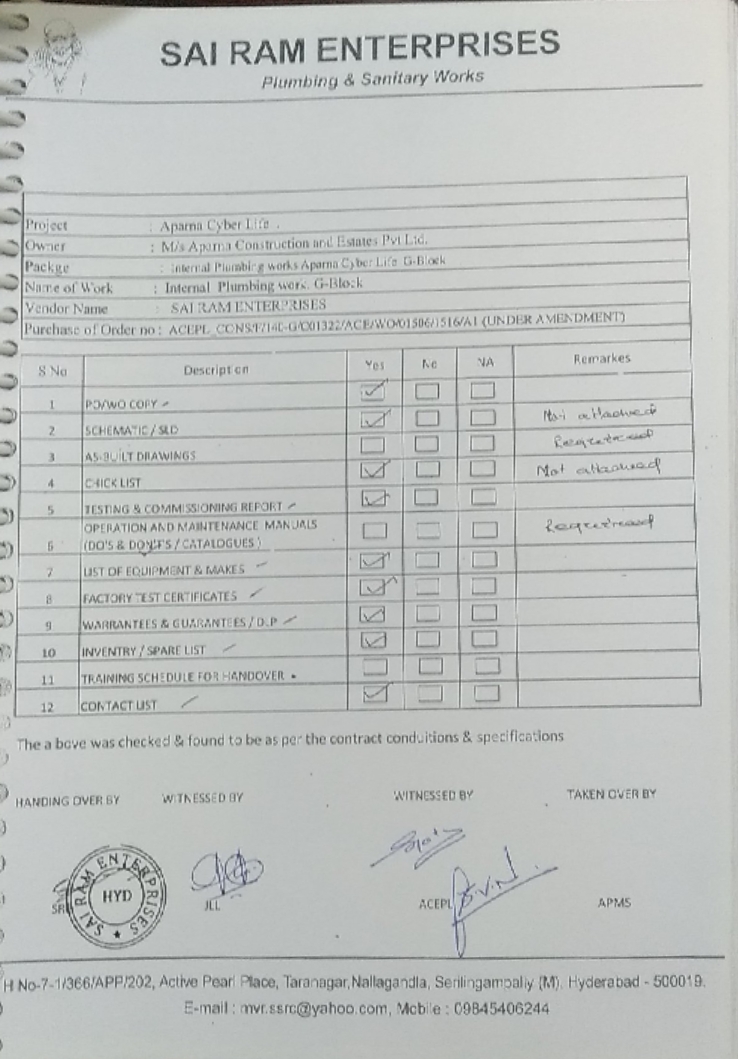 SAI RAM ENTERPRISES
Plumbing & Sanitary Works
Project : Aparna Cyber Life .
Owner : M/s Aparna Construction and Estates Pvt Ltd.
Packge : Internal Plumbing works Aparna Cyber Life G-Block
Name of Work : Internal Plumbing work. G-Block
Vendor Name : SAI RAM ENTERPRISES
Purchase of Order no : (UNDER AMENDMENT)
S No Description Yes No NA Remarkes
1 PO/WO COPY
2 SCHEMATIC / SLD Not attached
3 AS-BUILT DRAWINGS
4 CHICK LIST Not attached
5 TESTING & COMMISSIONING REPORT
6 OPERATION AND MAINTENANCE MANUALS
(DO'S & DONTS / CATALOGUES )
7 LIST OF EQUIPMENT & MAKES
8 FACTORY TEST CERTIFICATES
9 WARRANTEES & GUARANTEES / DLP
10 INVENTRY / SPARE LIST
11 TRAINING SCHEDULE FOR HANDOVER
12 CONTACT LIST
The a bove was checked & found to be as per the contract conduitions & specifications
HANDING OVER BY WITNESSED BY WITNESSED BY TAKEN OVER BY
SAI RAM ENTERPRISES
HYD
JLL ACEPL APMS
H No-7-1/366/APP/202, Active Pearl Place, Taranagar,Nallagandla, Serilingampally (M), Hyderabad - 500019.
E-mail : mvr.ssrc@yahoo.com, Mobile : 09845406244